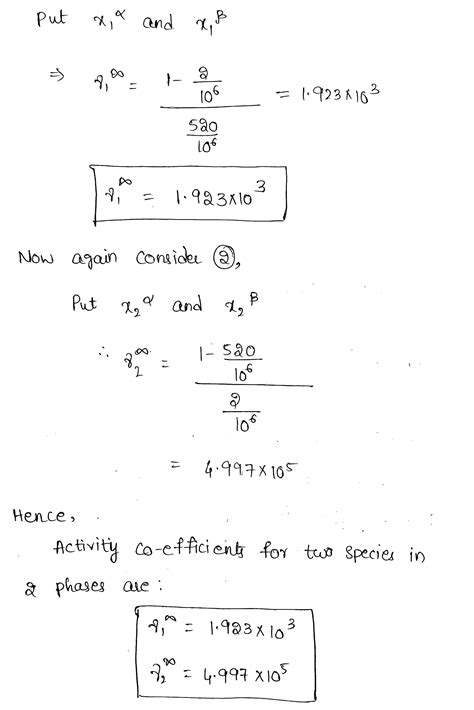 Put x₁^α and x₁^β
⇒ γ₁^∞ = (1 - 2/10⁶) / (520/10⁶) = 1.923×10³
γ₁^∞ = 1.923×10³
Now again consider ②,
Put x₂^α and x₂^β
∴ γ₂^∞ = (1 - 520/10⁶) / (2/10⁶)
= 4.997×10⁵
Hence,
Activity co-efficients for two species in
2 phases are :
γ₁^∞ = 1.923×10³
γ₂^∞ = 4.997×10⁵